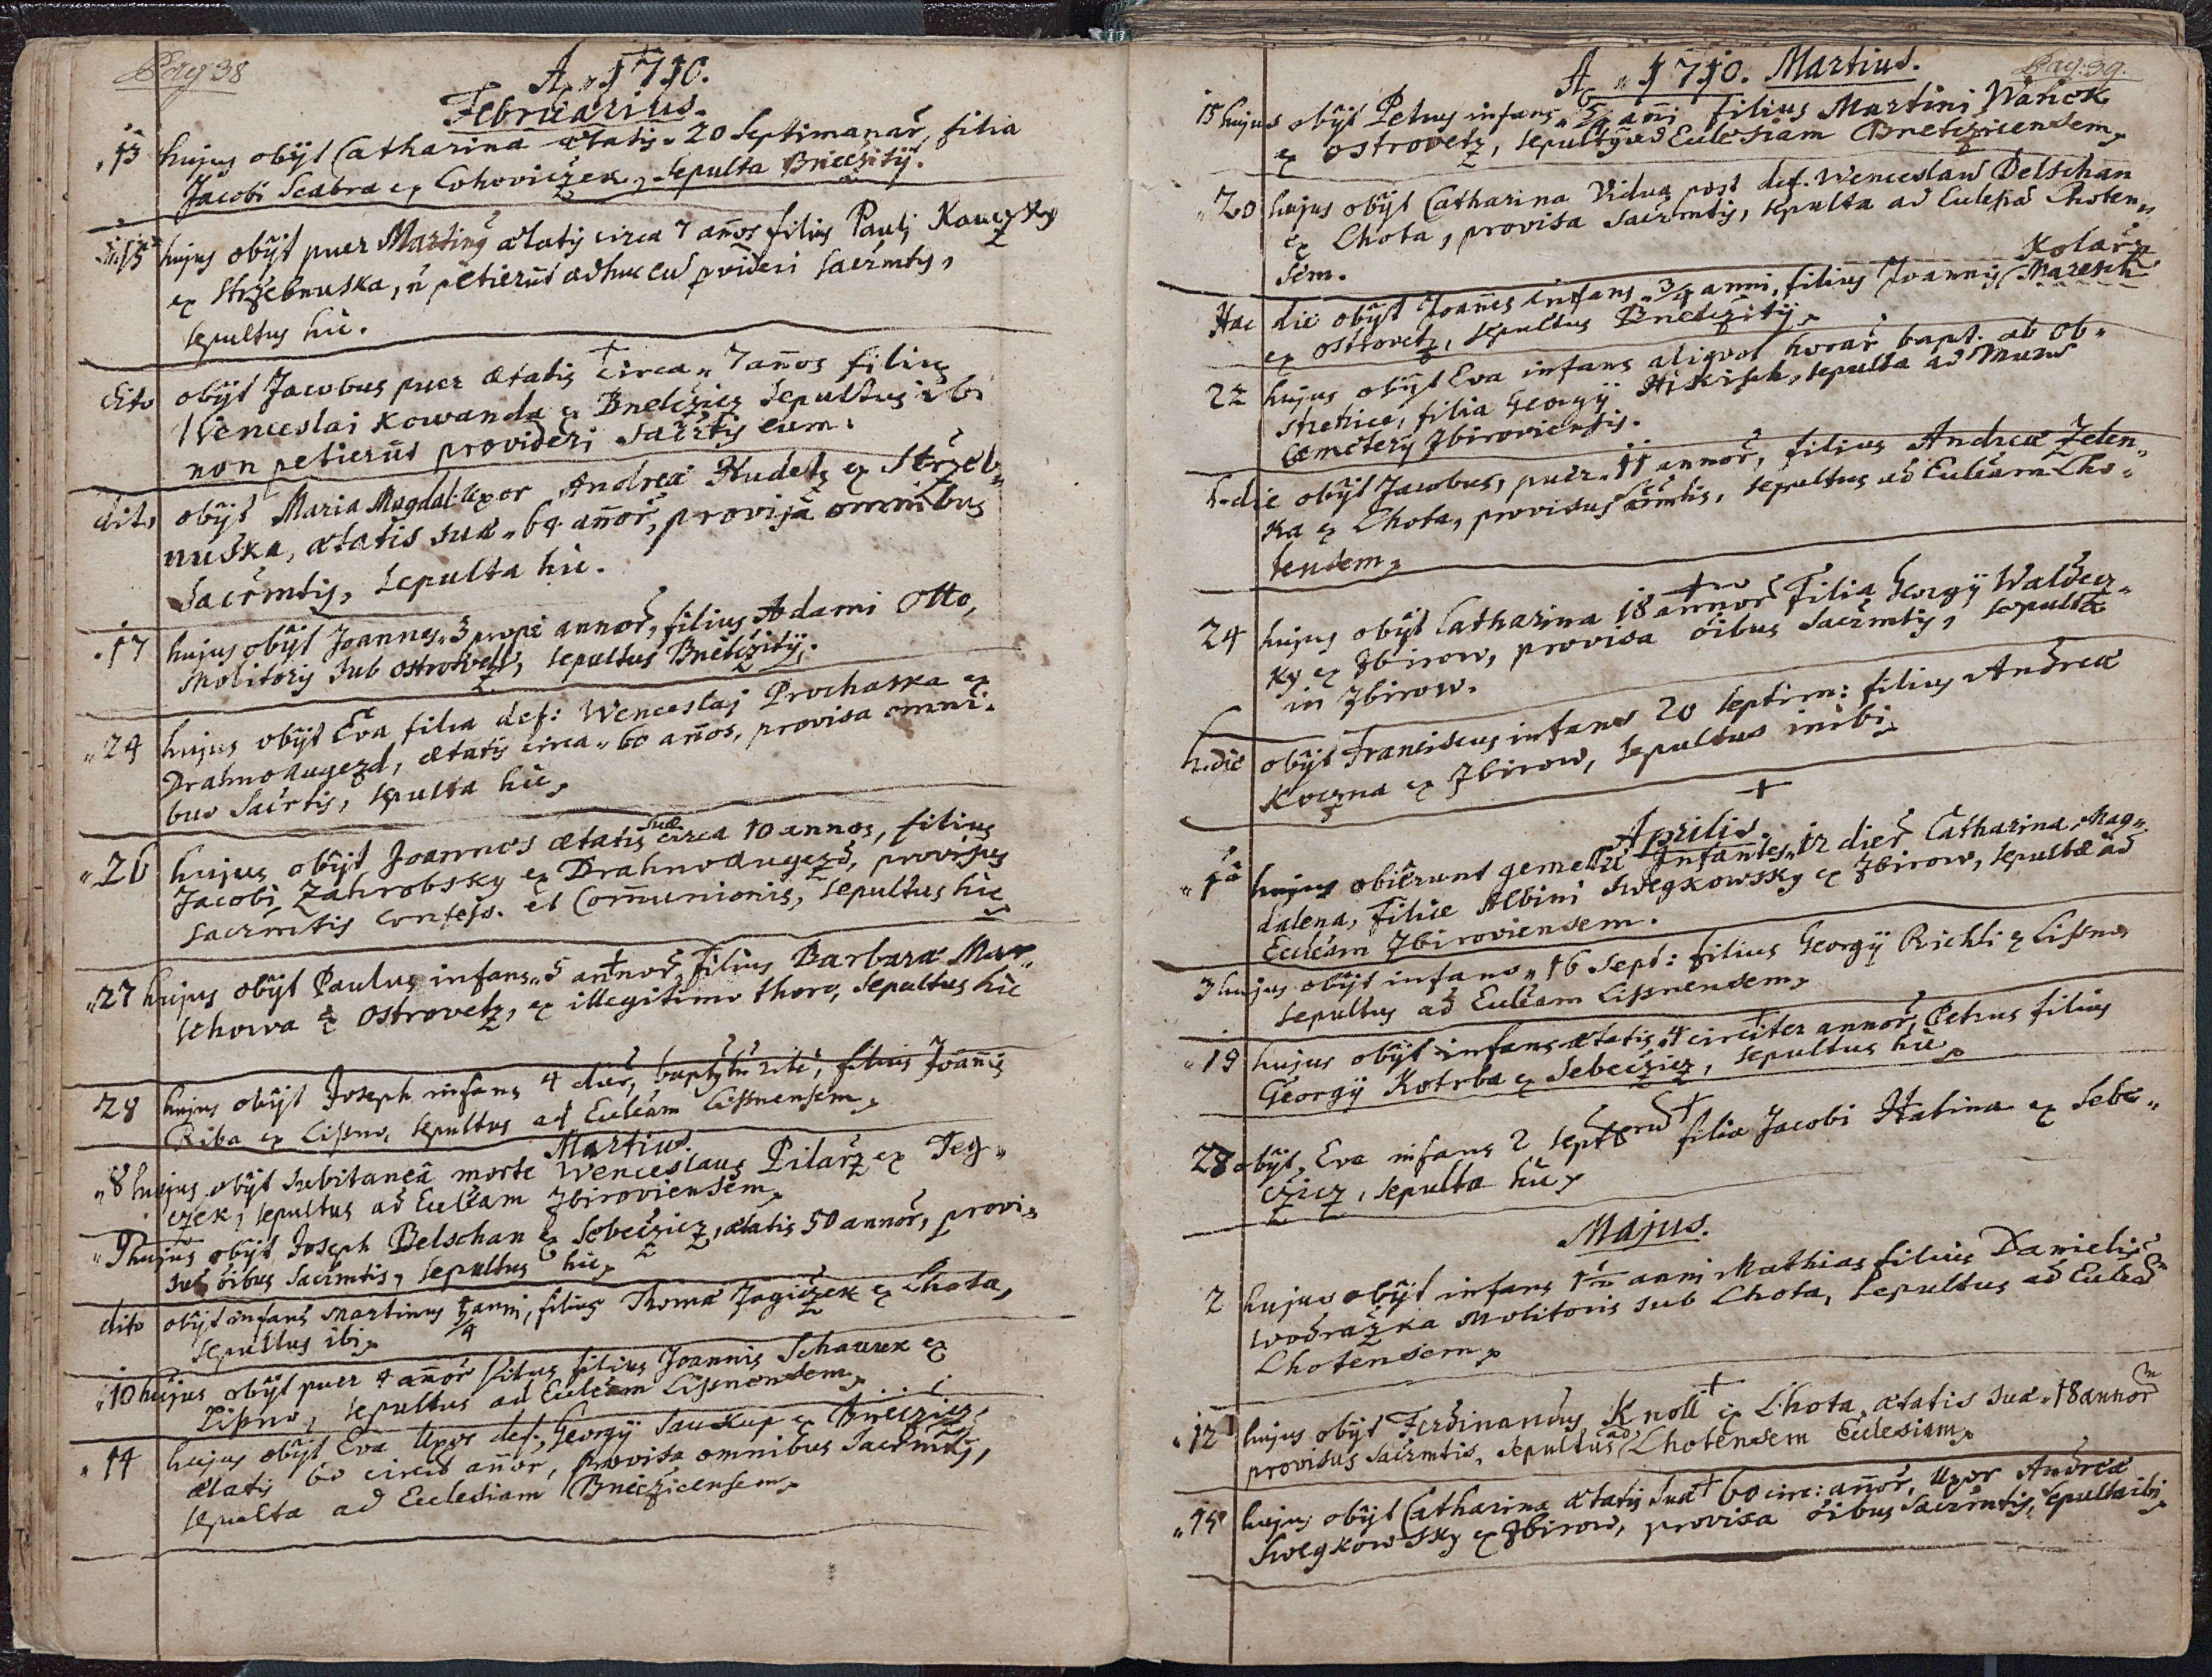 Pag 38
A. 1710.
Februarius.
13 hujus obijt Catharina ætatis 20 Septimanar, filia
Jacobi Scabra ex Cohoviczek, sepulta Brieczitÿ.
15 hujus obijt puer Martinus ætatis circa 7 años filius Pauli Kauczky
ex Strzebnuska, ñ petierũt adhuc eũ p̃videri sacr̃mtis,
sepultus hic.
dito obijt Jacobus puer ætatis circa 7 años filius
Wenceslai Kowanda ex Bnelczicz sepultus ibi
non petierũt provideri Sacr̃tis eum.
dito obijt Maria Magdal. Uxor Andreæ Hudetz ex Strzeb„
nuska, ætatis suæ 64 añor̃, provisa omnibus
Sacr̃mtis, sepulta hic.
17 hujus obijt Joannes 3 propè annor̃, filius Adami Otto,
Molitoris sub Ostrovetz, sepultus Bnelczitÿ.
24 hujus obijt Eva filia def: Wenceslai Prochaska ex
Drahnoaugezd, ætatis circa 60 años, provisa omni„
bus Sacr̃tis, sepulta hic,
26 hujus obijt Joannes ætatis suæ circa 10 annos, filius
Jacobi Zahrobsky ex Drahnoaugezd, provisus
sacr̃mtis confess. et Com̃unionis, sepultus hic
27 hujus obijt Paulus infans 5 annor̃, filius Barbaræ Mar„
schowa ex Ostrovetz, ex illegitimo thoro, sepultus hic
28 hujus obijt Joseph infans 4 dier̃, baptztũ ritè, filius Joañis
Riba ex Lissno, sepultus ad Eccl̃eam Lissnensem,
Martius.
8 hujus obijt subitaneâ morte Wenceslaus Pilarz ex Teg„
czek, sepultus ad Eccl̃eam Zbiroviensem,
9 hujus obijt Joseph Belschan ex Sebeczicz, ætatis 50 annor̃, provi„
sus oĩbus Sacr̃mtis, sepultus hic,
dito obijt infans Martinus 5/4 anni, filius Thomæ Jagiczek ex Lhota,
sepultus ibi,
10 hujus obijt puer 4 añor̃ filius Joannis Schaurek ex
Lissno, sepultus ad Eccl̃eam Lissnensem,
14 hujus obijt Eva Uxor def. Georgÿ Saukup ex Bnieczicz,
ætatis 60 circit añor̃, provisa omnibus Sacr̃mtis,
sepulta ad Ecclesiam Bnieczicensem,
Pag. 39.
A. 1710. Martius.
15 hujus obijt Petrus infans 5/4 añi filius Martini Wanek
ex Ostrovetz, sepultus ad Ecclesiam Bnetczicensem,
20 hujus obijt Catharina Vidua post def. Wenceslaũ Delschan
ex Lhota, provisa Sacr̃mtis, sepulta ad Eccles̃iã Lhoten„
sem.
Hac die obijt Joañes infans 3/4 anni, filius Joannis Maresch Kolarz
ex Ostrovetz, sepultus Bnelczitÿ,
22 hujus obijt Eva infans aliquot horar̃ bapt. ab ob„
stetrice, filia Georgÿ Hikisch, sepulta ad murũ
Cæmeterÿ Zbiroviensis.
h. die obijt Jacobus, puer 11 annor̃, filius Andreæ Zelen„
ka ex Lhota, provisus s̃cr̃mtis, sepultus ad Eccl̃eam Lho„
tensem,
24 hujus obijt Catharina 18 annor̃ filia Georgÿ Waldecz„
ky ex Zbirow, provisa oĩbus Sacr̃mtis, sepulta
in Zbirow.
h. die obijt Franciscus infans 20 septim: filius Andreæ
Koczna ex Zbirow, sepultus inibi,
Aprilis.
1a hujus obierunt gemellæ Infantes 12 dier̃ Catharina, Mag„
dalena, filiæ Albini Swegkowsky ex Zbirow, sepultæ ad
Eccl̃eam Zbiroviensem.
3 hujus obijt infans 16 Sept: filius Georgÿ Richli ex Lissno
sepultus ad Eccl̃eam Lissnensem,
19 hujus obijt infans ætatis 4 circiter annor̃, Petrus filius
Georgÿ Kotrba ex Sebeczicz, sepultus hic,
28 obijt Eva infans 2 Sept. filia Jacobi Halina ex Sebe„
czicz, sepulta hic,
Majus.
2 hujus obijt infans 1 anni Mathias filius Danielis
Wodražka Molitoris sub Lhota, sepultus ad Eccl̃eã
Lhotensem,
12 hujus obijt Ferdinandus Knoll ex Lhota, ætatis suæ 18 annor̃
provisus sacr̃mtis, sepultus ad Lhotensem Ecclesiam,
15 hujus obijt Catharina ætatis suæ 60 circ: añor̃, Uxor Andreæ
Swegkowsky ex Zbirow, provisa oĩbus Sacr̃mtis, sepulta ibi,